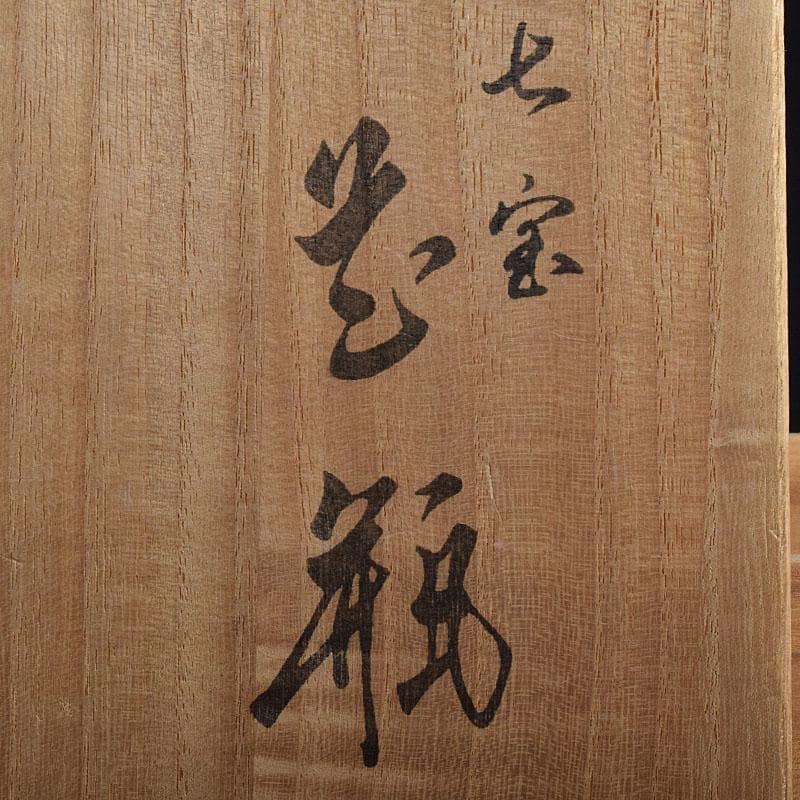 七宝
花瓶